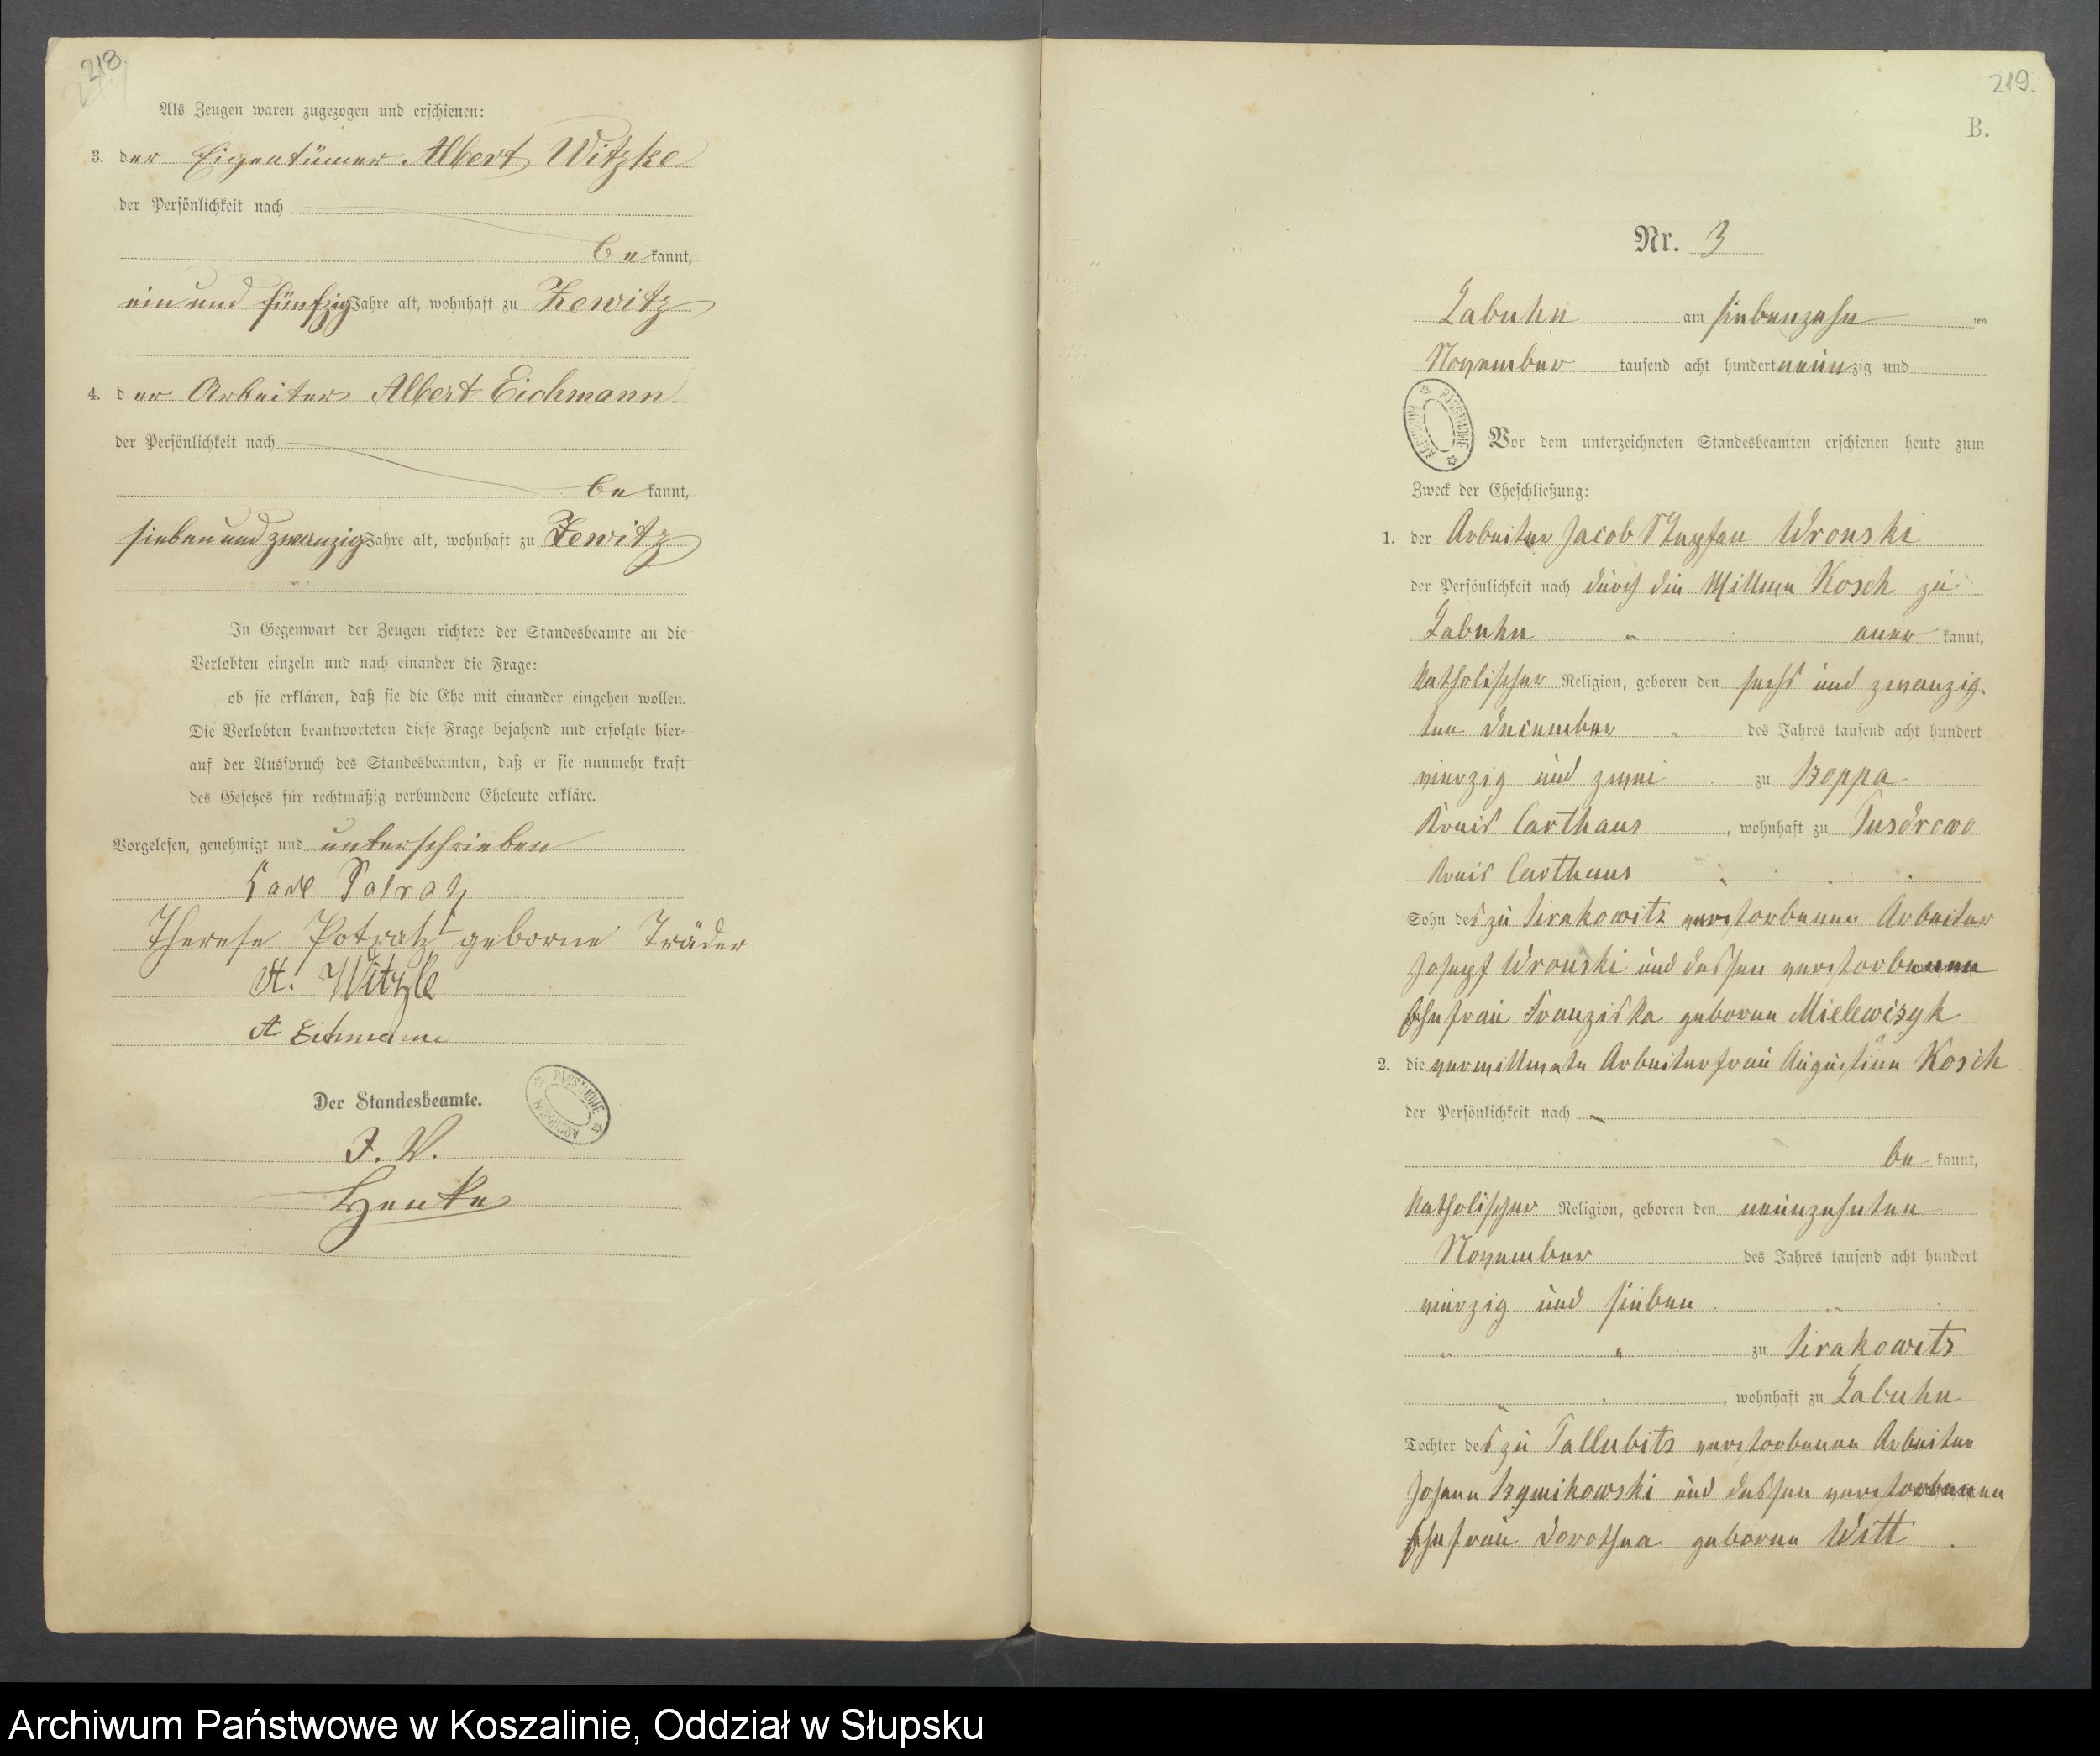 218.
Als Zeugen waren zugezogen und erschienen:
3. der Eigentümer Albert Witzke
der Persönlichkeit nach
be kannt,
ein und fünfzig Jahre alt, wohnhaft zu Zewitz
4. der Arbeiter Albert Eichmann
der Persönlichkeit nach
be kannt,
sieben und zwanzig Jahre alt, wohnhaft zu Zewitz
In Gegenwart der Zeugen richtete der Standesbeamte an die
Verlobten einzeln und nach einander die Frage:
ob sie erklären, daß sie die Ehe mit einander eingehen wollen.
Die Verlobten beantworteten diese Frage bejahend und erfolgte hier-
auf der Ausspruch des Standesbeamten, daß er sie nunmehr kraft
des Gesetzes für rechtmäßig verbundene Eheleute erkläre.
Vorgelesen, genehmigt und unterschrieben
Carl
Therese Potratz geborne Träder
A. Witzke
A Eichmann
Der Standesbeamte.
J. V.
Henke
219.
B.
Nr. 3
Labuhn am siebenzehn ten
November tausend acht hundert neun zig und
Vor dem unterzeichneten Standesbeamten erschienen heute zum
Zweck der Eheschließung:
1. der Arbeiter Jacob Stephan Wronski
der Persönlichkeit nach durch die Wittwe Kosch zu
Labuhn aner kannt,
katholischer Religion, geboren den sechs und zwanzig-
ten December des Jahres tausend acht hundert
vierzig und zwei zu Szoppa
Kreis Carthaus, wohnhaft zu Tusdrowo
Kreis Carthaus
Sohn des zu Sirakowitz verstorbenen Arbeiter
Joseph Wronski und dessen verstorbenen
Ehefrau Franziska geborne Mielewczyk
2. die verwittwete Arbeiterfrau Augustine Kosch
der Persönlichkeit nach
be kannt,
katholischer Religion, geboren den neunzehnten
November des Jahres tausend acht hundert
vierzig und sieben
zu Sirakowitz
, wohnhaft zu Labuhn
Tochter des zu Tallubitz verstorbenen Arbeiter
Johann Szymikowski und dessen verstorbenen
Ehefrau Dorothea geborne Witt
Archiwum Państwowe w Koszalinie, Oddział w Słupsku